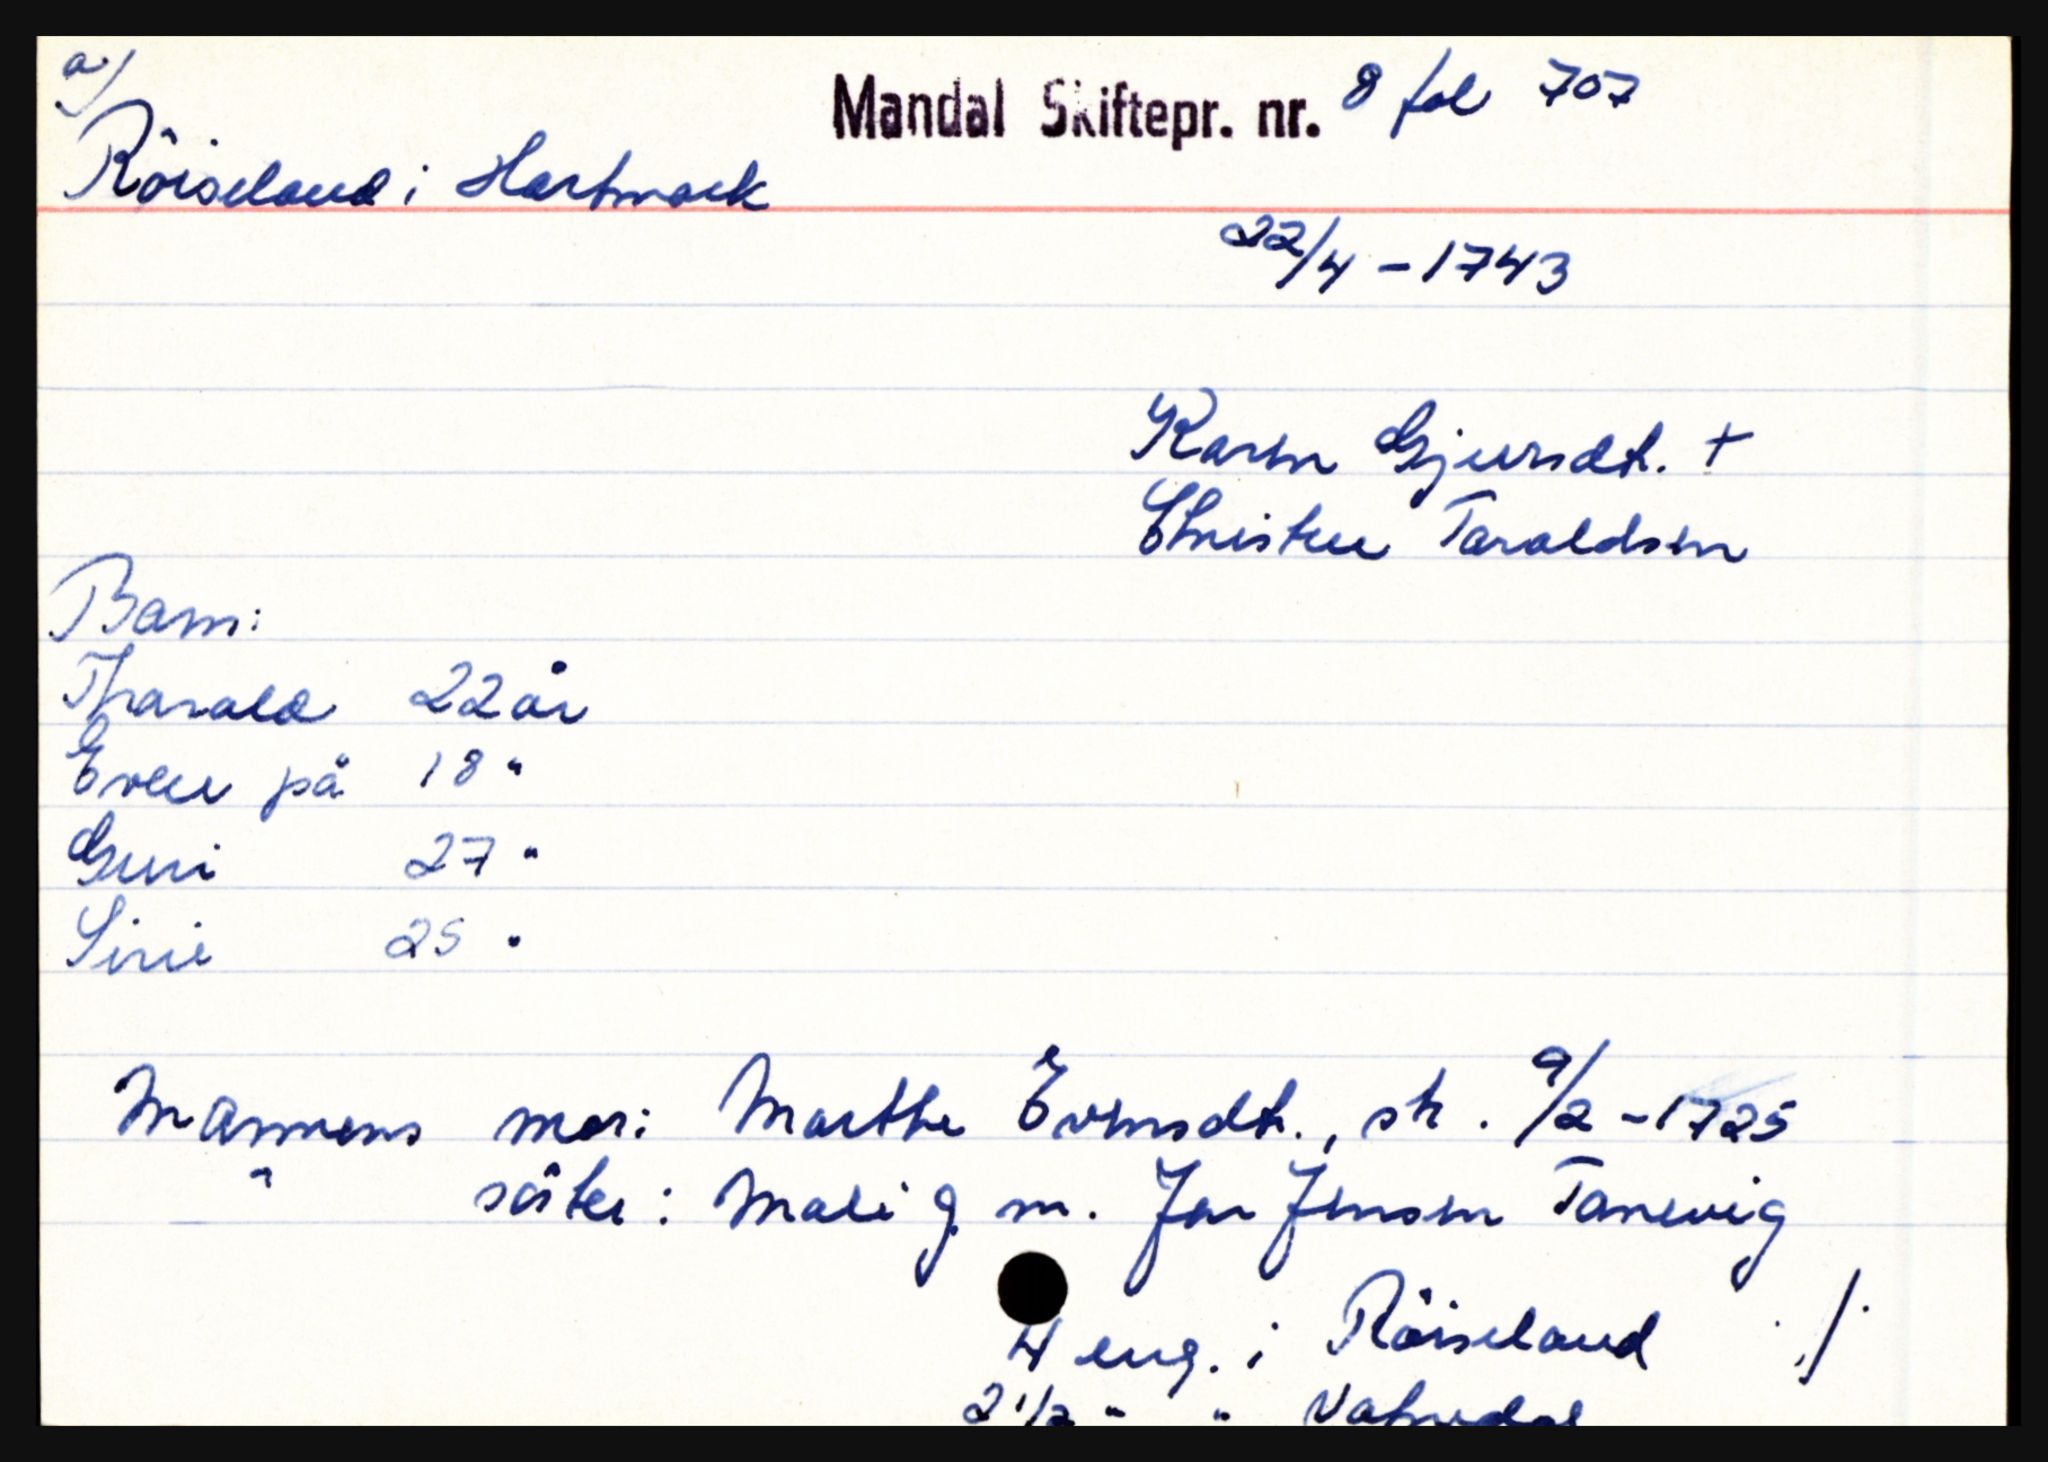 a/
Mandal Skiftepr. nr. 8 fol 707
Röiseland i Hartmark
22/4 - 1743
Karen Gjeursdt. +
Christen Taraldsen
Barn:
Tharald 22 år
Even på 18 "
Guri 27 "
Sirie 25 "
Mannens mor: Marthe Evensdt., sk. 9/2 - 1725
" söster: Mali g. m. Jon Jensen Tanevig
4 eng. i Röiseland ./.
2 1/2 " "